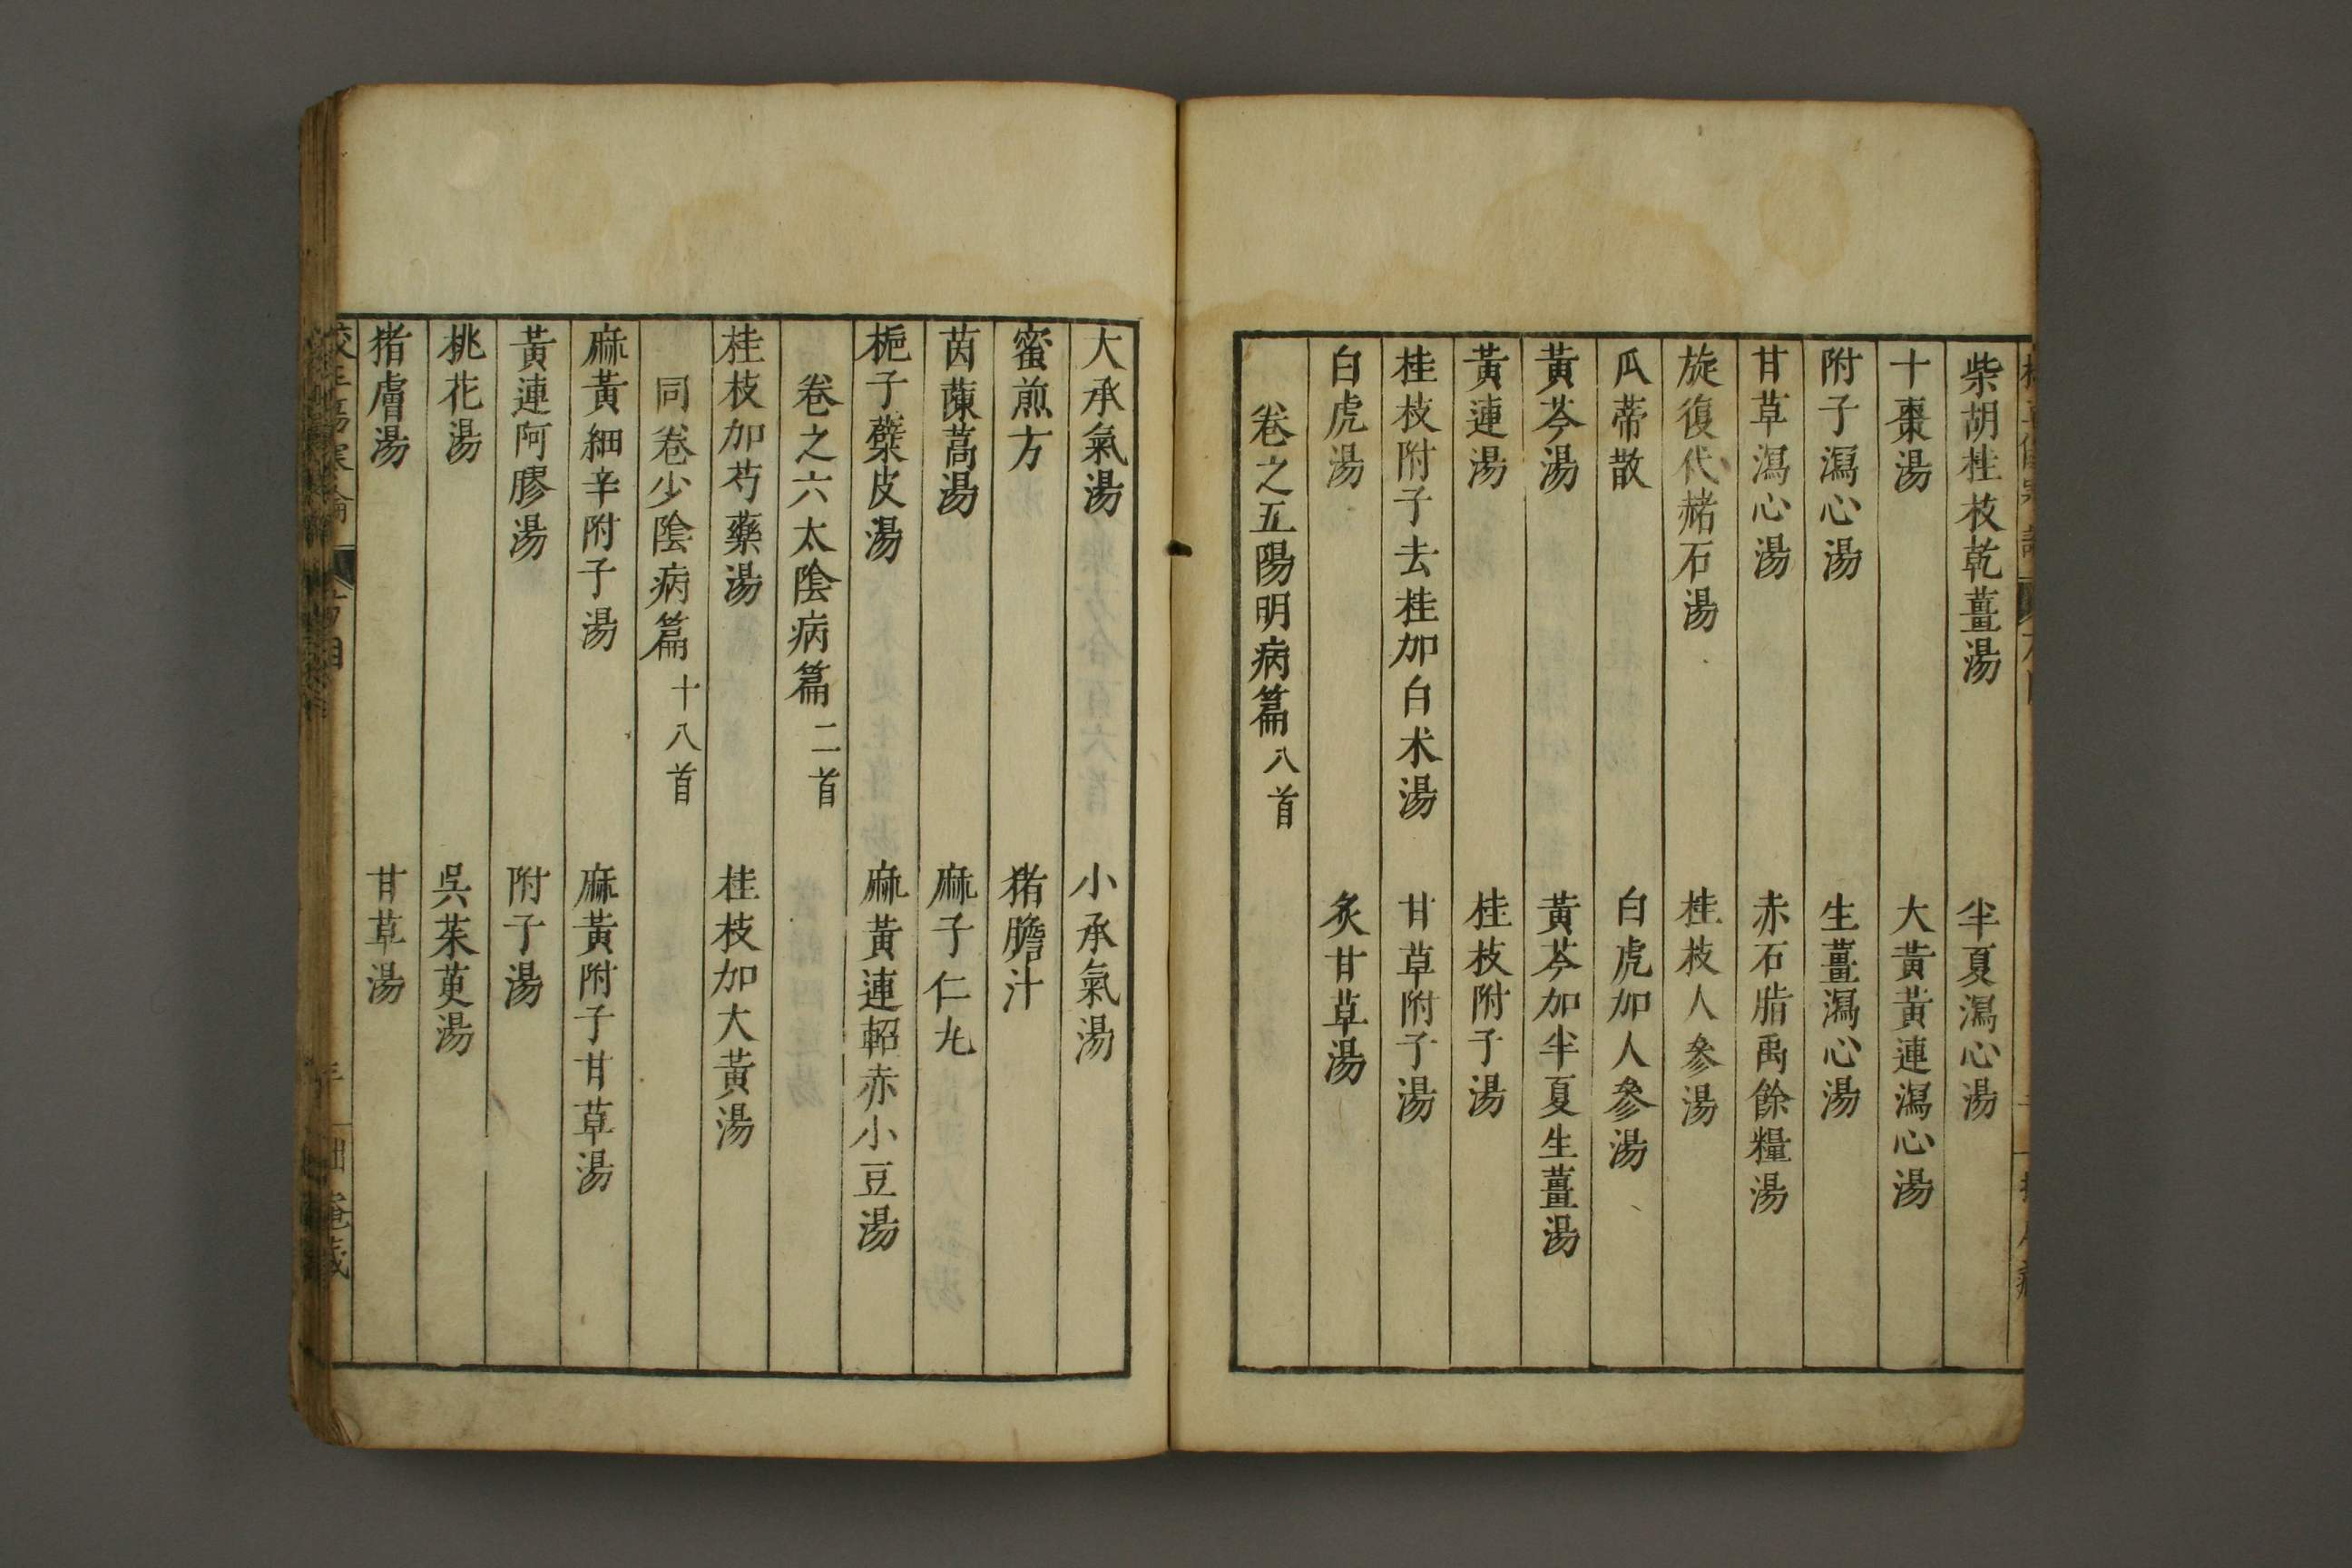 柴胡桂枝乾薑湯　半夏瀉心湯
十棗湯　大黃黃連瀉心湯
附子瀉心湯　生薑瀉心湯
甘草瀉心湯　赤石脂禹餘糧湯
旋復代赭石湯　桂枝人參湯
瓜蒂散　白虎加人參湯
黃芩湯　黃芩加半夏生薑湯
黃連湯　桂枝附子湯
桂枝附子去桂加白朮湯　甘草附子湯
白虎湯　炙甘草湯
卷之五陽明病篇八首
大承氣湯　小承氣湯
蜜煎方　猪膽汁
茵蔯蒿湯　麻子仁丸
梔子蘗皮湯　麻黃連軺赤小豆湯
卷之六太陰病篇二首
桂枝加芍藥湯　桂枝加大黃湯
同卷少陰病篇十八首
麻黃細辛附子湯　麻黃附子甘草湯
黃連阿膠湯　附子湯
桃花湯　吳茱萸湯
猪膚湯　甘草湯